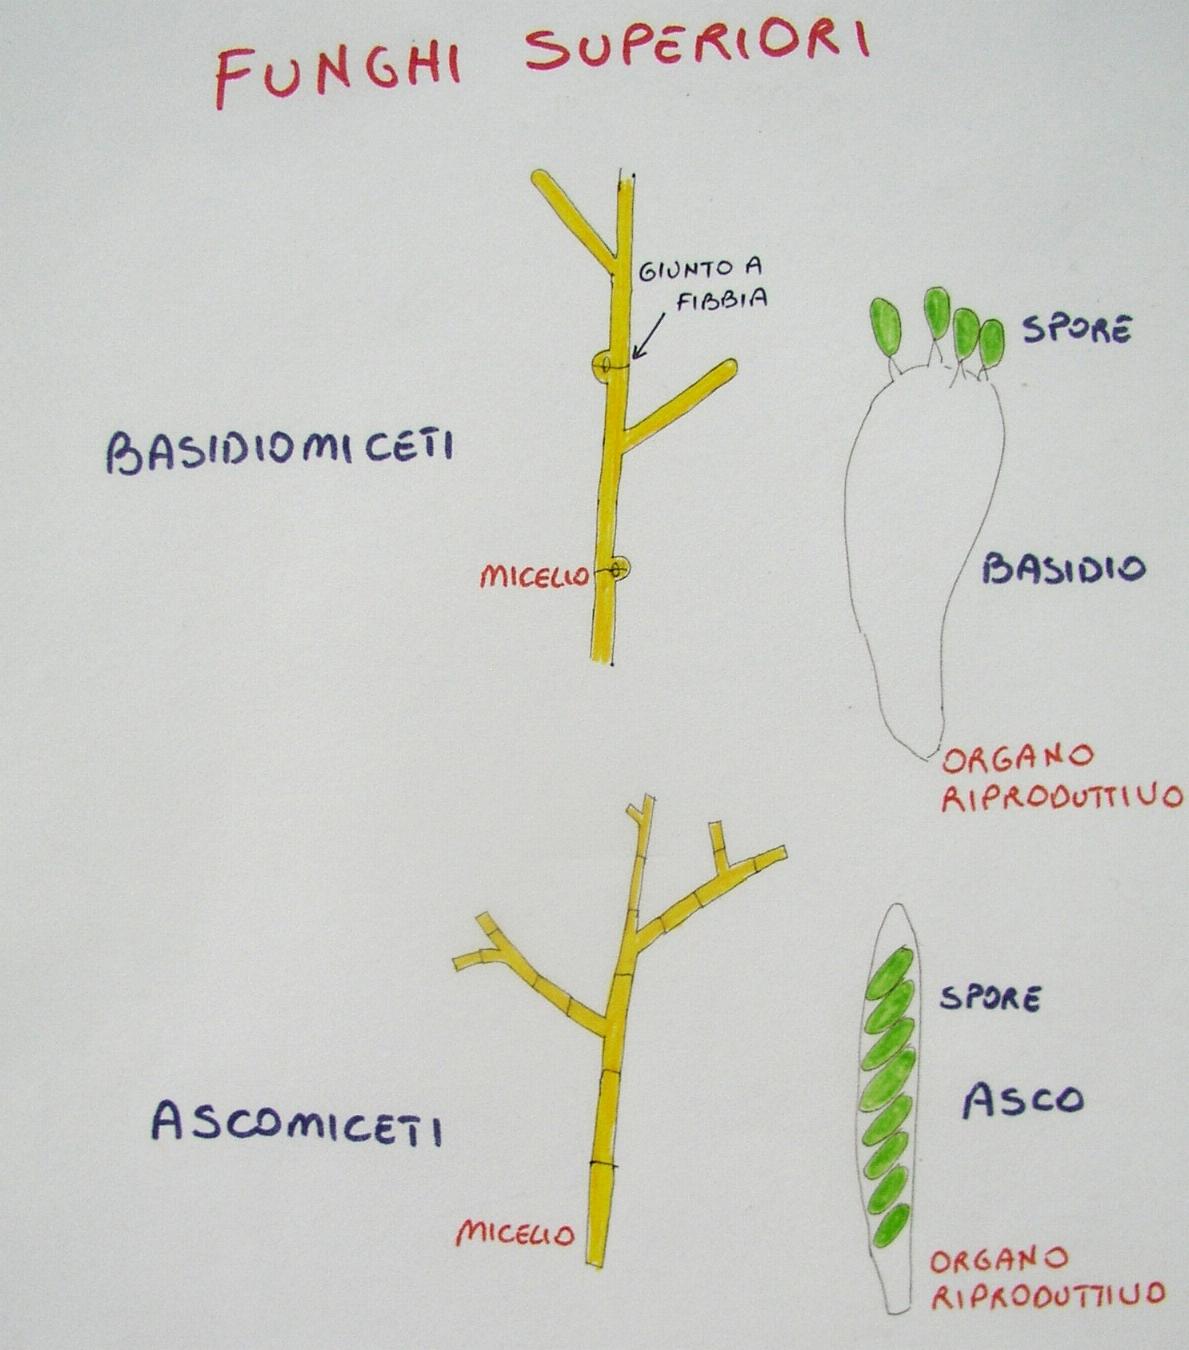 FUNGHI SUPERIORI
GIUNTO A
FIBBIA
SPORE
BASIDIOMICETI
MICELIO
BASIDIO
ORGANO
RIPRODUTTIVO
SPORE
ASCO
ASCOMICETI
MICELIO
ORGANO
RIPRODUTTIVO